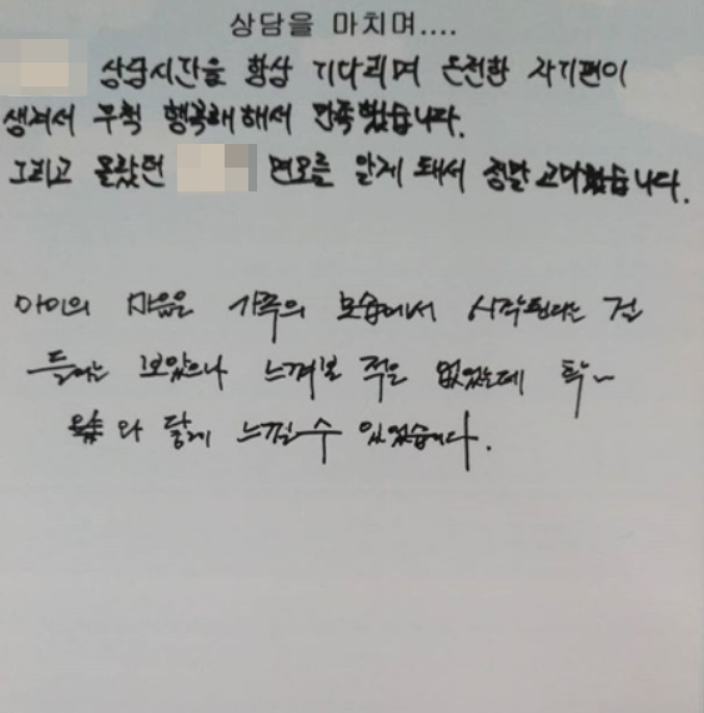 상담을 마치며....
상담시간을 항상 기다리며 온전한 자기편이
생겨서 무척 행복해해서 만족했습니다.
그리고 몰랐던 면모를 알게 돼서 정말 고마웠습니다.
아이의 마음은 가족의 모습에서 시작된다는 걸
들어는 보았으나 느껴본 적은 없었는데 확~
와 닿게 느낄 수 있었습니다.